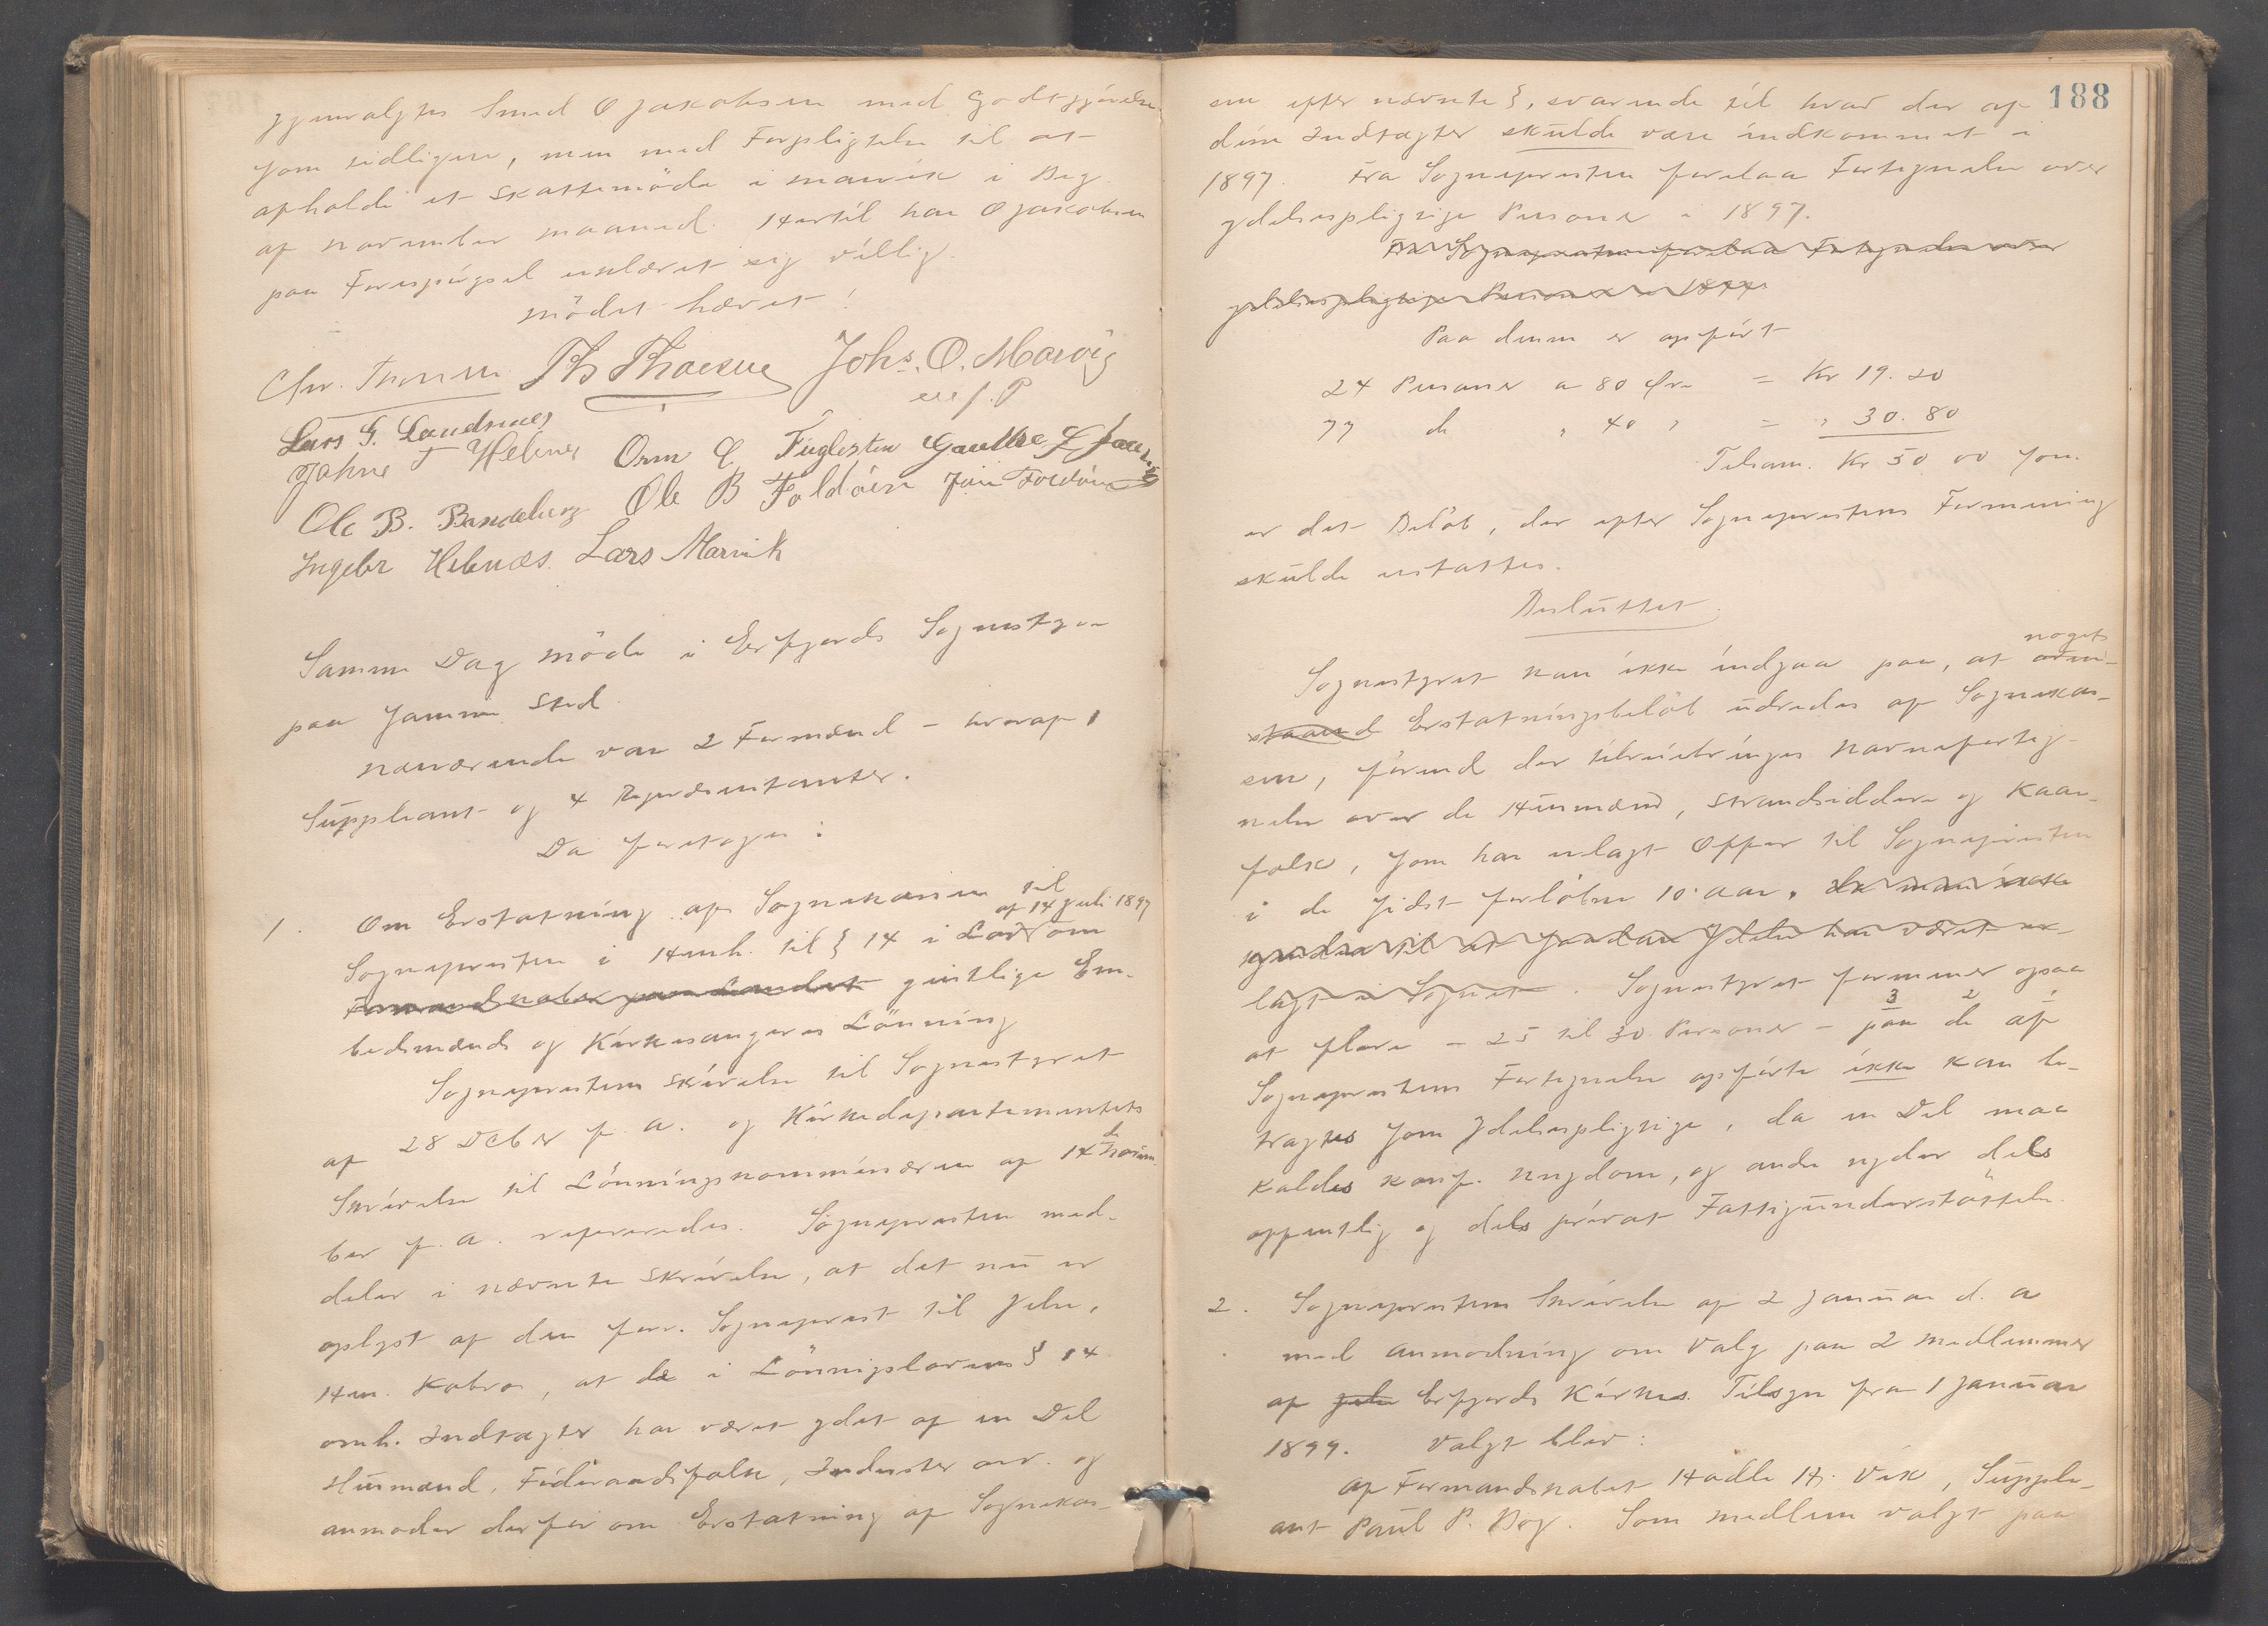 gjenvalgtes Smed O Jakobsen med Godtgjörelse
som tidligere, men med Forpligtelse til at
afholde et Skattemöde i Marvik i Beg.
af November maaned. Hertil har O Jakobsen
paa Forespörgsel erklæret sig villig.
Mödet hævet!
Chr. Thorsen Th Thorsen Johs. O. Marvig
Lars G. Landsnes
Johne T Hebnes Orm E Fuglestein
Ole B. Ole B Foldöen
Ingebr Hebnæs. Lars Marvik
Samme Dag möde i Erfjords Sognestyre
paa samme Sted
nærværende var 2 Formænd - hvoraf 1
Suppleant og 4 Repræsentanter.
Da foretoges:
1. Om Erstatning af Sognekassen til
af 14 Juli 1897
Sognepresten i Henh. til § 14 i Lov om
Formandskaber paa Landet geistlige Em-
bedsmænds og Kirkesangeres Lönning
Sogneprestens Skrivelse til Sognestyret
af 28 Dcbr f. a. og Kirkedepartementets
Skrivelse til Lönningskommissæren af 14de Novem-
ber f. a. refereredes. Sognepresten med-
deler i nævnte Skrivelse, at det nu er
oplyst af den forr. Sogneprest til Jelse,
Hr. Kobro, at de i Lönnigslovens § 14
omh. Indtægter har været ydet af en Del
Husmænd, Föderaadsfolk, Inderster osv. og
anmoder derfor om Erstatning af Sognekas-
188
sen efter nævnte §, svarende til hvad der af
disse Indtægter skulde være indkommet i
1897. Fra Sognepresten forelaa Fortegnelse over
ydelsespligtige Personer i 1897.
Fra Sognepresten forelaa Fortegnelse over
ydelsespligtige Personer i 1897
Paa denne er opfört
24 Personer a 80 Öre = Kr 19.20
77 do " 40 " = " 30.80
Tilsam. Kr 50 00 som
er det Belöb, der efter Sogneprestens Formening
skulde erstattes.
Besluttet
Sognestyret kan ikke indgaa paa, at noget
Erstatningsbelöb udredes af Sognekas-
sen, förend der tilveiebringes Navneforteg-
nelse over de Husmænd, Strandsiddere og Kaar-
folk, som har erlagt Offer til Sognepresten
i de sidst forlöbne 10 aar. da man ikke
til at saadan Ydelse har været er-
lagt i Sognet. Sognestyret formener ogsaa
3 2 1
at flere - 25 til 30 Personer - paa de af
Sogneprestens Fortegnelse opförte ikke kan be-
tragtes som Ydelsespligtige, da en Del maa
kaldes konf. Ungdom, og andre nyder dels
offentlig og dels privat Fattigunderstöttelse.
2. Sogneprestens Skrivelse af 2 Januar d. a
med anmodning om Valg paa 2 medlemmer
af Jelse Erfjords Kirkes Tilsyn fra 1 Januar
1899. Valgt blev:
af Formandskabet Hadle H. Vik, Supple-
ant Paul P. Bog. Som medlem valgt paa